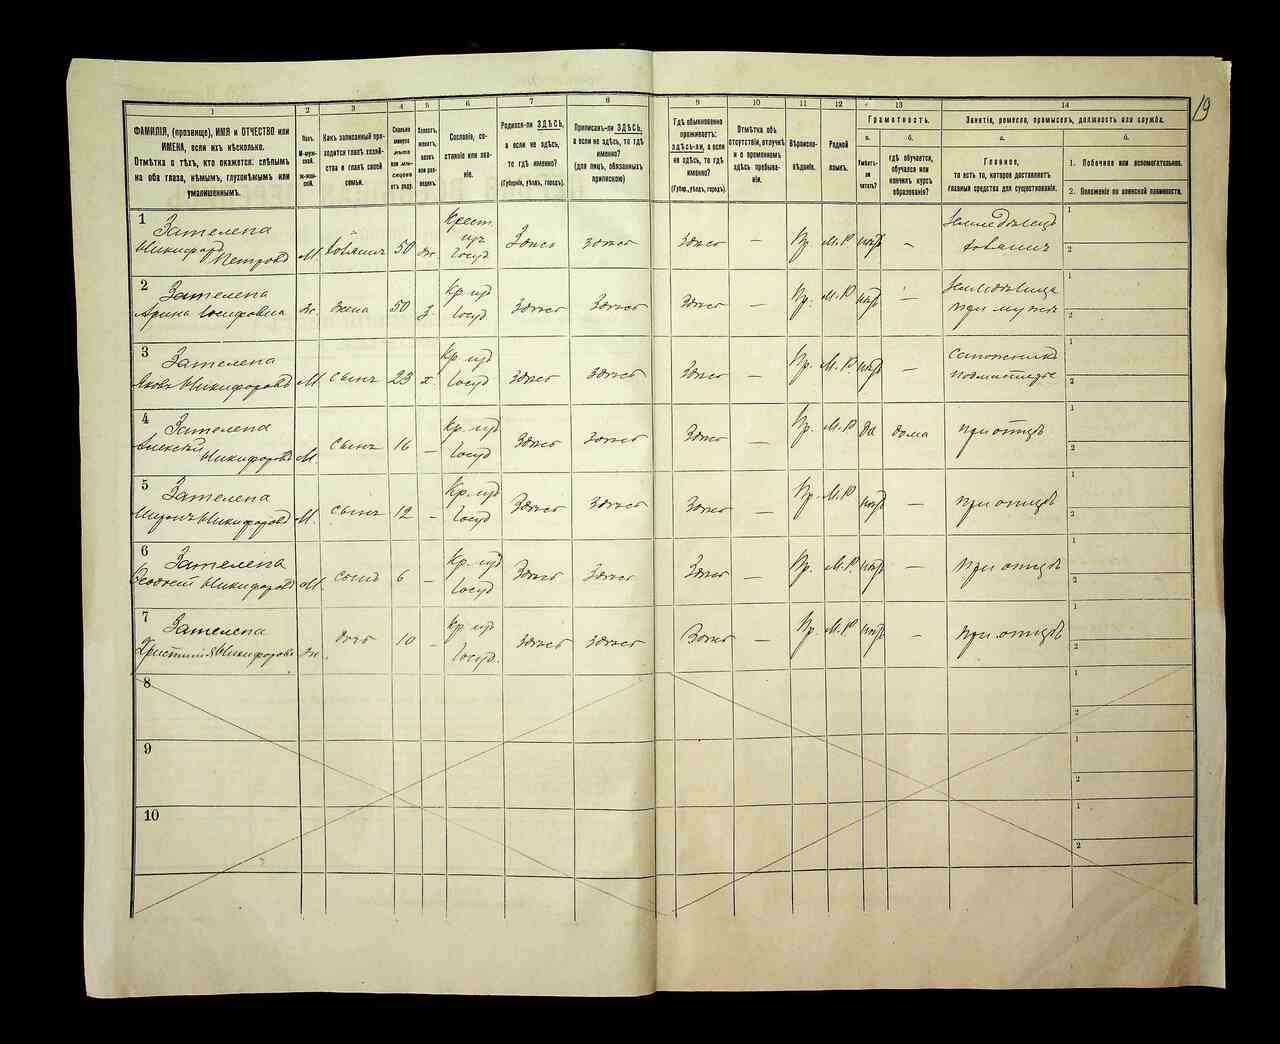 19
1 2 3 4 5 6 7 8 9 10 11 12 13 14
ФАМИЛІЯ, (прозвище), ИМЯ и ОТЧЕСТВО или
ИМЕНА, если ихъ нѣсколько.
Отмѣтка о тѣхъ, кто окажется: слѣпымъ
на оба глаза, нѣмымъ, глухонѣмымъ или
умалишеннымъ.
Полъ.
М-муж-
ской.
ж-жен-
скій.
Какъ записанный при-
ходится главѣ хозяй-
ства и главѣ своей
семьи.
Сколько
минуло
лѣтъ
или мѣся-
цевъ
отъ роду.
Холостъ,
женатъ,
вдовъ
или раз-
веденъ.
Сословіе, со-
стояніе или зва-
ніе.
Родился-ли ЗДѢСЬ,
а если не здѣсь,
то гдѣ именно?
(Губернія, уѣздъ, городъ).
Приписанъ-ли ЗДѢСЬ,
а если не здѣсь, то гдѣ
именно?
(для лицъ, обязанныхъ
припискою)
Гдѣ обыкновенно
проживаетъ:
здѣсь-ли, а если
не здѣсь, то гдѣ
именно?
(Губер., уѣздъ, городъ).
Отмѣтка объ
отсутствіи, отлучкѣ
и о временномъ
здѣсь пребыва-
ніи.
Вѣроиспо-
вѣданіе.
Родной
языкъ.
Грамотность.
а.
Умѣетъ-
ли
читать?
б.
гдѣ обучается,
обучался или
кончилъ курсъ
образованія?
Занятіе, ремесло, промыселъ, должность или служба.
а.
Главное,
то есть то, которое доставляетъ
главныя средства для существованія.
б.
1. Побочное или вспомогательное.
2. Положеніе по воинской повинности.
1 Зателепа
Никифоръ Петровъ М. хозяинъ 50 ж. Крест. изъ Госуд Здѣсь здѣсь здѣсь — Пр. М.Р нѣтъ — Земледѣлецъ хозяинъ
1
2
2 Зателепа
Арина Іосифовна ж. жена 50 з. Кр. изъ Госуд. здѣсь здѣсь здѣсь — Пр. М.Р нѣтъ — при мужѣ
1
2
3 Зателепа
Яковъ Никифоровъ М сынъ 23 х. Кр. изъ Госуд здѣсь здѣсь здѣсь — Пр. М.Р нѣтъ — сапожникъ
1
2
4 Зателепа
Алексѣй Никифоровъ М. сынъ 16 — Кр. изъ Госуд здѣсь здѣсь здѣсь — Пр. М.Р да дома при отцѣ
1
2
5 Зателепа
Никифоровъ М. сынъ 12 — Кр. изъ Госуд здѣсь здѣсь здѣсь — Пр. М.Р нѣтъ — при отцѣ
1
2
6 Зателепа
Никифоровъ М. сынъ 6 — Кр. изъ Госуд здѣсь здѣсь здѣсь — Пр. М.Р. нѣтъ — при отцѣ
1
2
7 Зателепа
Христинія Никифоровна ж. дочь 10 — Кр. изъ Госуд. здѣсь здѣсь здѣсь — Пр. М.Р нѣтъ — при отцѣ
1
2
8
1
2
9
1
2
10
1
2